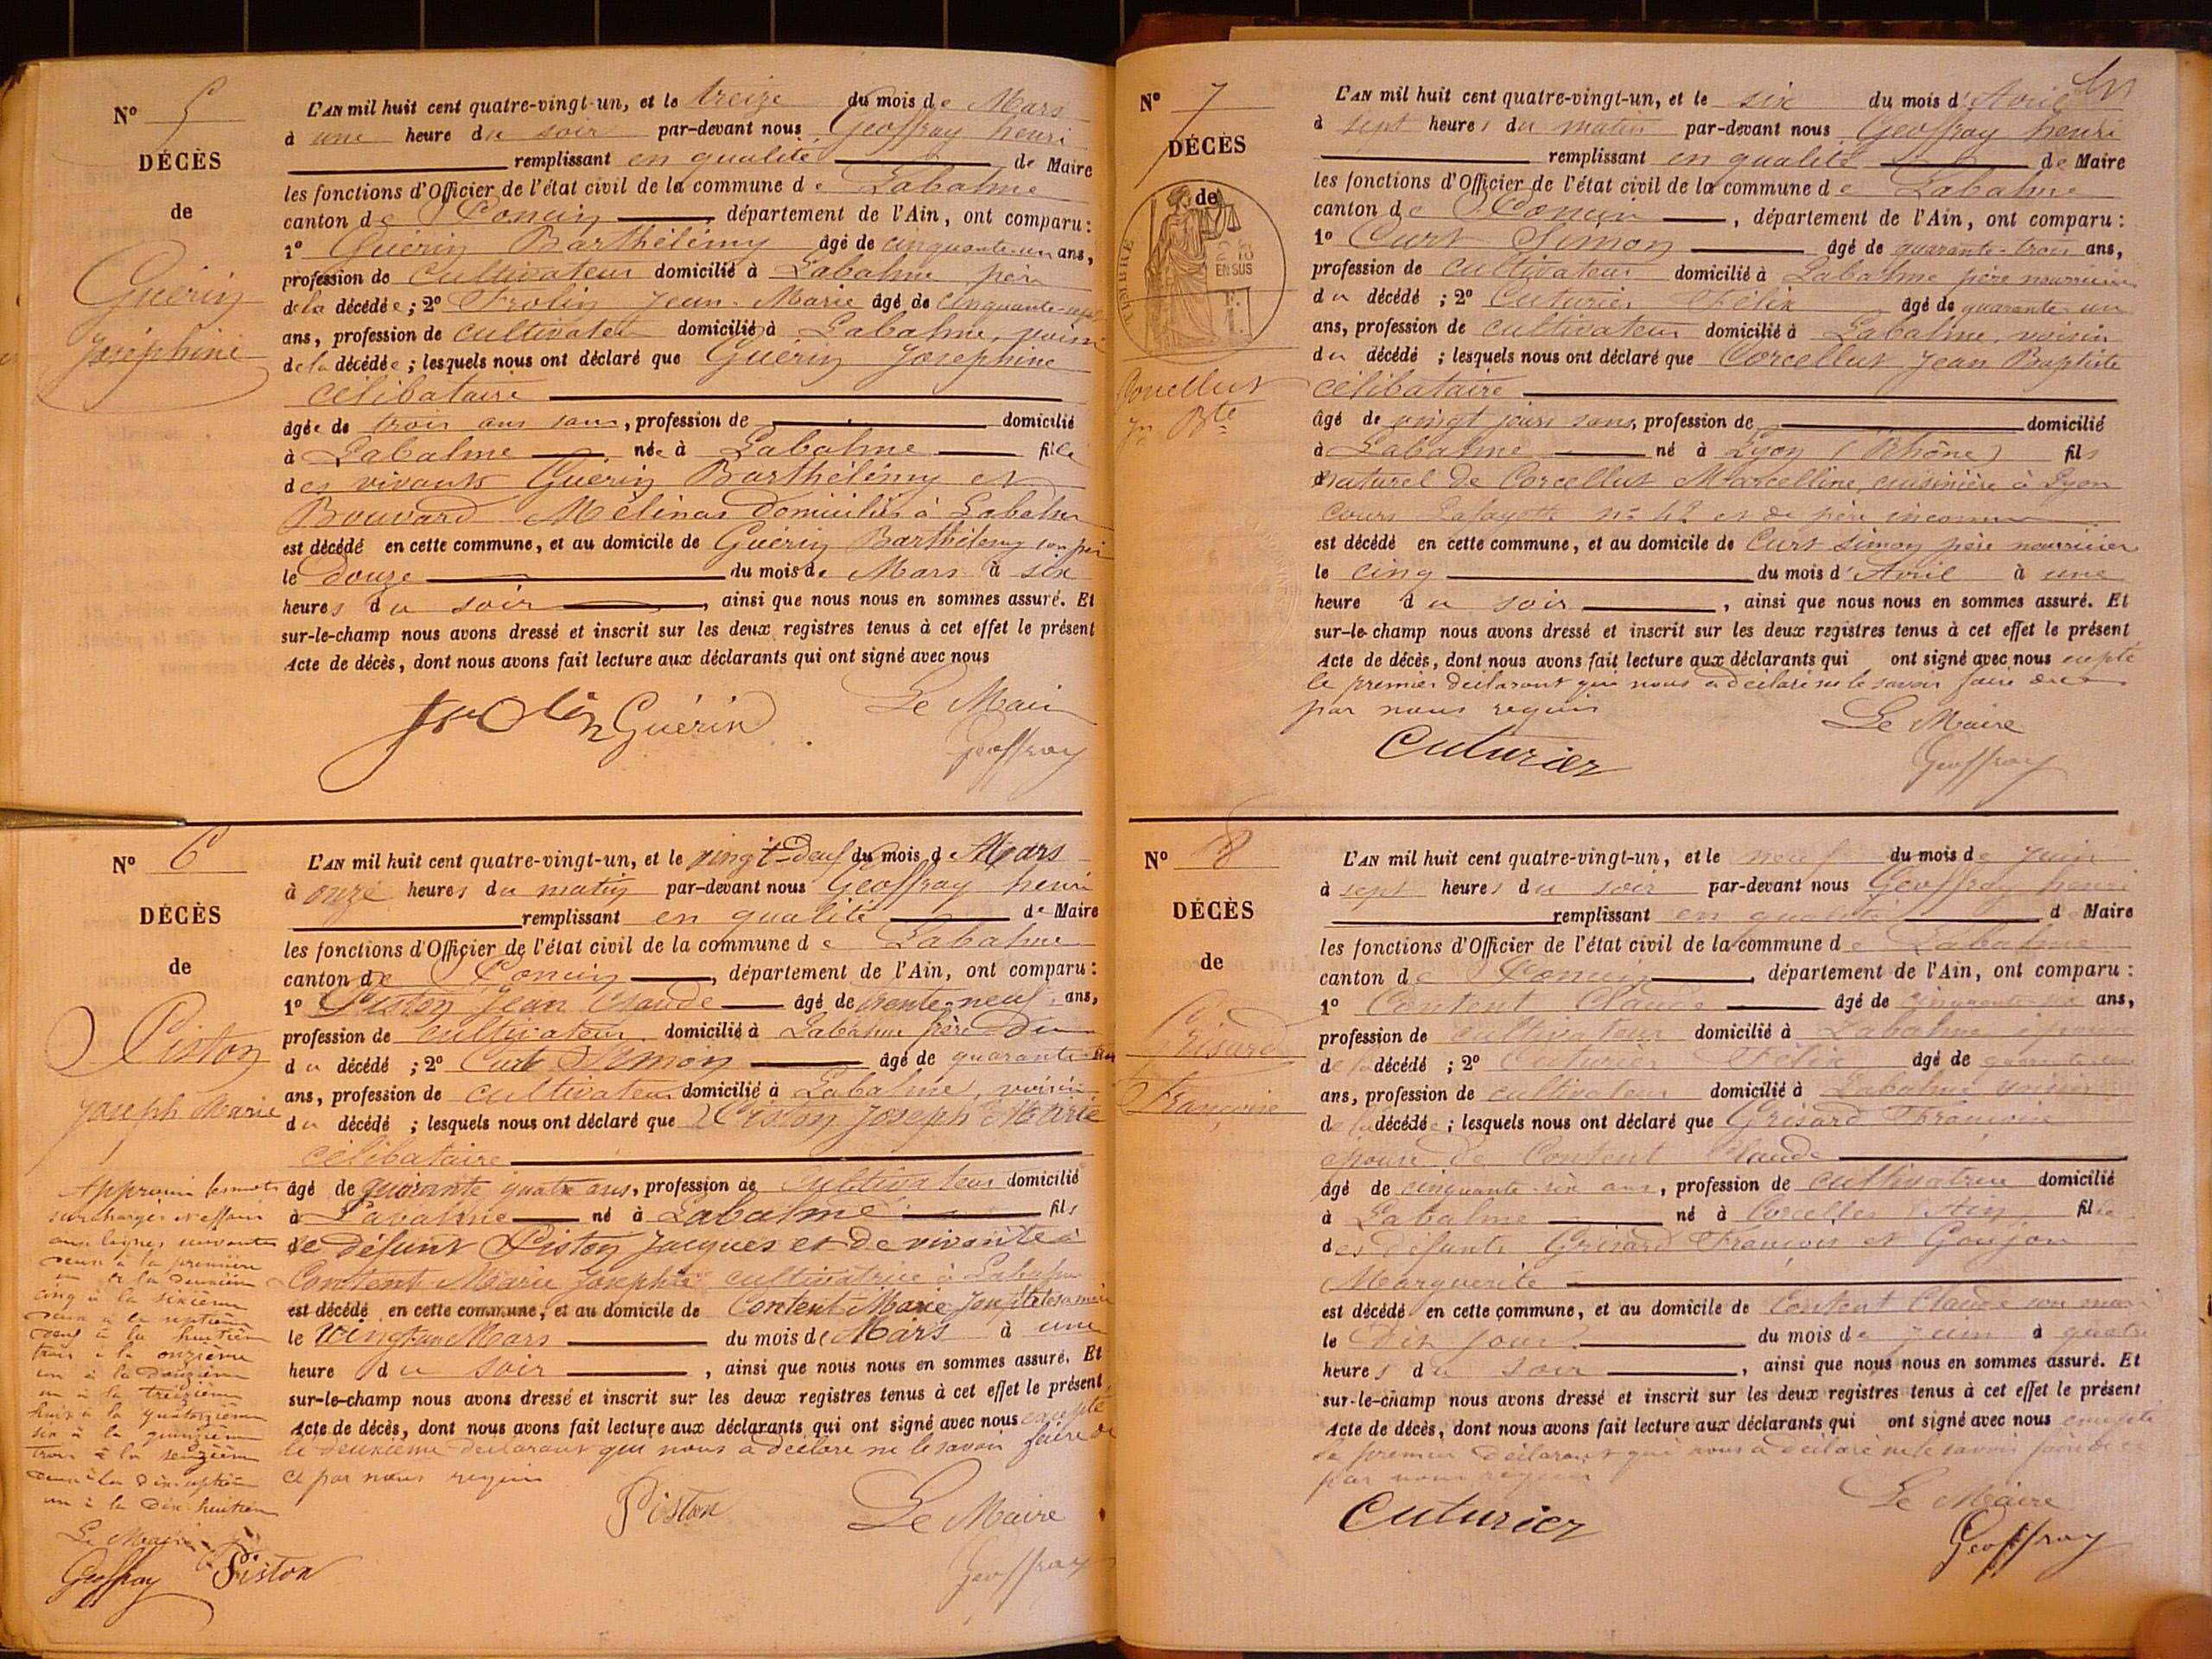 N° 5
DÉCÈS
de
Guérin
Joséphine
L'AN mil huit cent quatre-vingt-un, et le treize du mois de Mars
à une heure du soir par-devant nous Geoffray henri
remplissant en qualité de Maire
les fonctions d'Officier de l'état civil de la commune de Labalme
canton de Poncin, département de l'Ain, ont comparu :
1° Guérin Barthélémy âgé de cinquante-un ans,
profession de cultivateur domicilié à Labalme père
de la décédée ; 2° Frolin Jean-Marie âgé de cinquante-sept
ans, profession de cultivateur domicilié à Labalme, voisin
de la décédée ; lesquels nous ont déclaré que Guérin Josephine
célibataire
âgée de trois ans sans, profession de domicilié
à Labalme née à Labalme fille
des vivants Guérin Barthélémy et
Bouvard Mélinas domiciliés à Labalme
est décédé en cette commune, et au domicile de Guérin Barthélemy son père
le douze du mois de Mars à six
heures du soir, ainsi que nous nous en sommes assuré. Et
sur-le-champ nous avons dressé et inscrit sur les deux registres tenus à cet effet le présent
Acte de décès, dont nous avons fait lecture aux déclarants qui ont signé avec nous
Frolin Guérin Le Maire
Geoffray
N° 6
DÉCÈS
de
Piston
Joseph Marie
L'AN mil huit cent quatre-vingt-un, et le vingt-deux du mois de Mars
à onze heures du matin par-devant nous Geoffray henri
remplissant en qualité de Maire
les fonctions d'Officier de l'état civil de la commune de Labalme
canton de Poncin, département de l'Ain, ont comparu :
1° Piston Jean Claude âgé de trente-neuf ans,
profession de cultivateur domicilié à Labalme frère du
du décédé ; 2° Curt Simon âgé de quarante-trois
ans, profession de cultivateur domicilié à Labalme, voisin
du décédé ; lesquels nous ont déclaré que Piston Joseph Marie
célibataire
âgé de quarante quatre ans, profession de cultivateur domicilié
à Labalme né à Labalme fils
de défunt Piston Jacques et de vivante
Content Marie Josephte cultivatrice à Labalme
est décédé en cette commune, et au domicile de Content Marie Josephte sa mère
le vingt un Mars du mois de Mars à une
heure du soir, ainsi que nous nous en sommes assuré. Et
sur-le-champ nous avons dressé et inscrit sur les deux registres tenus à cet effet le présent
Acte de décès, dont nous avons fait lecture aux déclarants qui ont signé avec nous excepté
le deuxième déclarant qui nous a déclaré ne le savoir faire de
ce par nous requis
Piston Le Maire
Geoffray
Approuvé les mots
surchargés et effacés
aux lignes suivantes
deux à la première
un à la deuxième
cinq à la sixième
deux à la septième
neuf à la huitième
trois à la onzième
un à la douzième
un à la treizième
huit à la quatorzième
six à la quinzième
trois à la seizième
deux à la dix-septième
un à la dix-huitième
Le Maire
Geoffray Piston
N° 7
DÉCÈS
de
TIMBRE
EN SUS
Corcellut
Jn Bte
L'AN mil huit cent quatre-vingt-un, et le six du mois d'Avril
à sept heures du matin par-devant nous Geoffray henri
remplissant en qualité de Maire
les fonctions d'Officier de l'état civil de la commune de Labalme
canton de Poncin, département de l'Ain, ont comparu :
1° Curt Simon âgé de quarante-trois ans,
profession de cultivateur domicilié à Labalme père nourricier
du décédé ; 2° Cuturier Félix âgé de quarante un
ans, profession de cultivateur domicilié à Labalme, voisin
du décédé ; lesquels nous ont déclaré que Corcellut Jean Baptiste
célibataire
âgé de vingt jours sans, profession de domicilié
à Labalme né à Lyon (Rhône) fils
naturel de Corcellut Marcelline, cuisinière à Lyon
cours Lafayette n° 42 et de père inconnu
est décédé en cette commune, et au domicile de Curt Simon père nourricier
le cinq du mois d'Avril à une
heure du soir, ainsi que nous nous en sommes assuré. Et
sur-le-champ nous avons dressé et inscrit sur les deux registres tenus à cet effet le présent
Acte de décès, dont nous avons fait lecture aux déclarants qui ont signé avec nous excepté
le premier déclarant qui nous a déclaré ne le savoir faire de ce
par nous requis
Cuturier Le Maire
Geoffray
N° 8
DÉCÈS
de
Grisard
Françoise
L'AN mil huit cent quatre-vingt-un, et le neuf du mois de Juin
à sept heures du soir par-devant nous Geoffray henri
remplissant en qualité de Maire
les fonctions d'Officier de l'état civil de la commune de Labalme
canton de Poncin, département de l'Ain, ont comparu :
1° Content Claude âgé de cinquante-six ans,
profession de cultivateur domicilié à Labalme époux
de la décédé ; 2° Cuturier Félix âgé de quarante un
ans, profession de cultivateur domicilié à Labalme voisin
de la décédée ; lesquels nous ont déclaré que Grisard Françoise
épouse de Content Claude
âgé de cinquante-six ans, profession de cultivatrice domicilié
à Labalme né à Corcelles (Ain) fille
des défunts Grisard François et Goujon
Marguerite
est décédé en cette commune, et au domicile de Content Claude son mari
le Dit jour du mois de Juin à quatre
heures du soir, ainsi que nous nous en sommes assuré. Et
sur-le-champ nous avons dressé et inscrit sur les deux registres tenus à cet effet le présent
Acte de décès, dont nous avons fait lecture aux déclarants qui ont signé avec nous excepté
le premier déclarant qui nous a déclaré ne le savoir faire de ce
par nous requis
Cuturier Le Maire
Geoffray